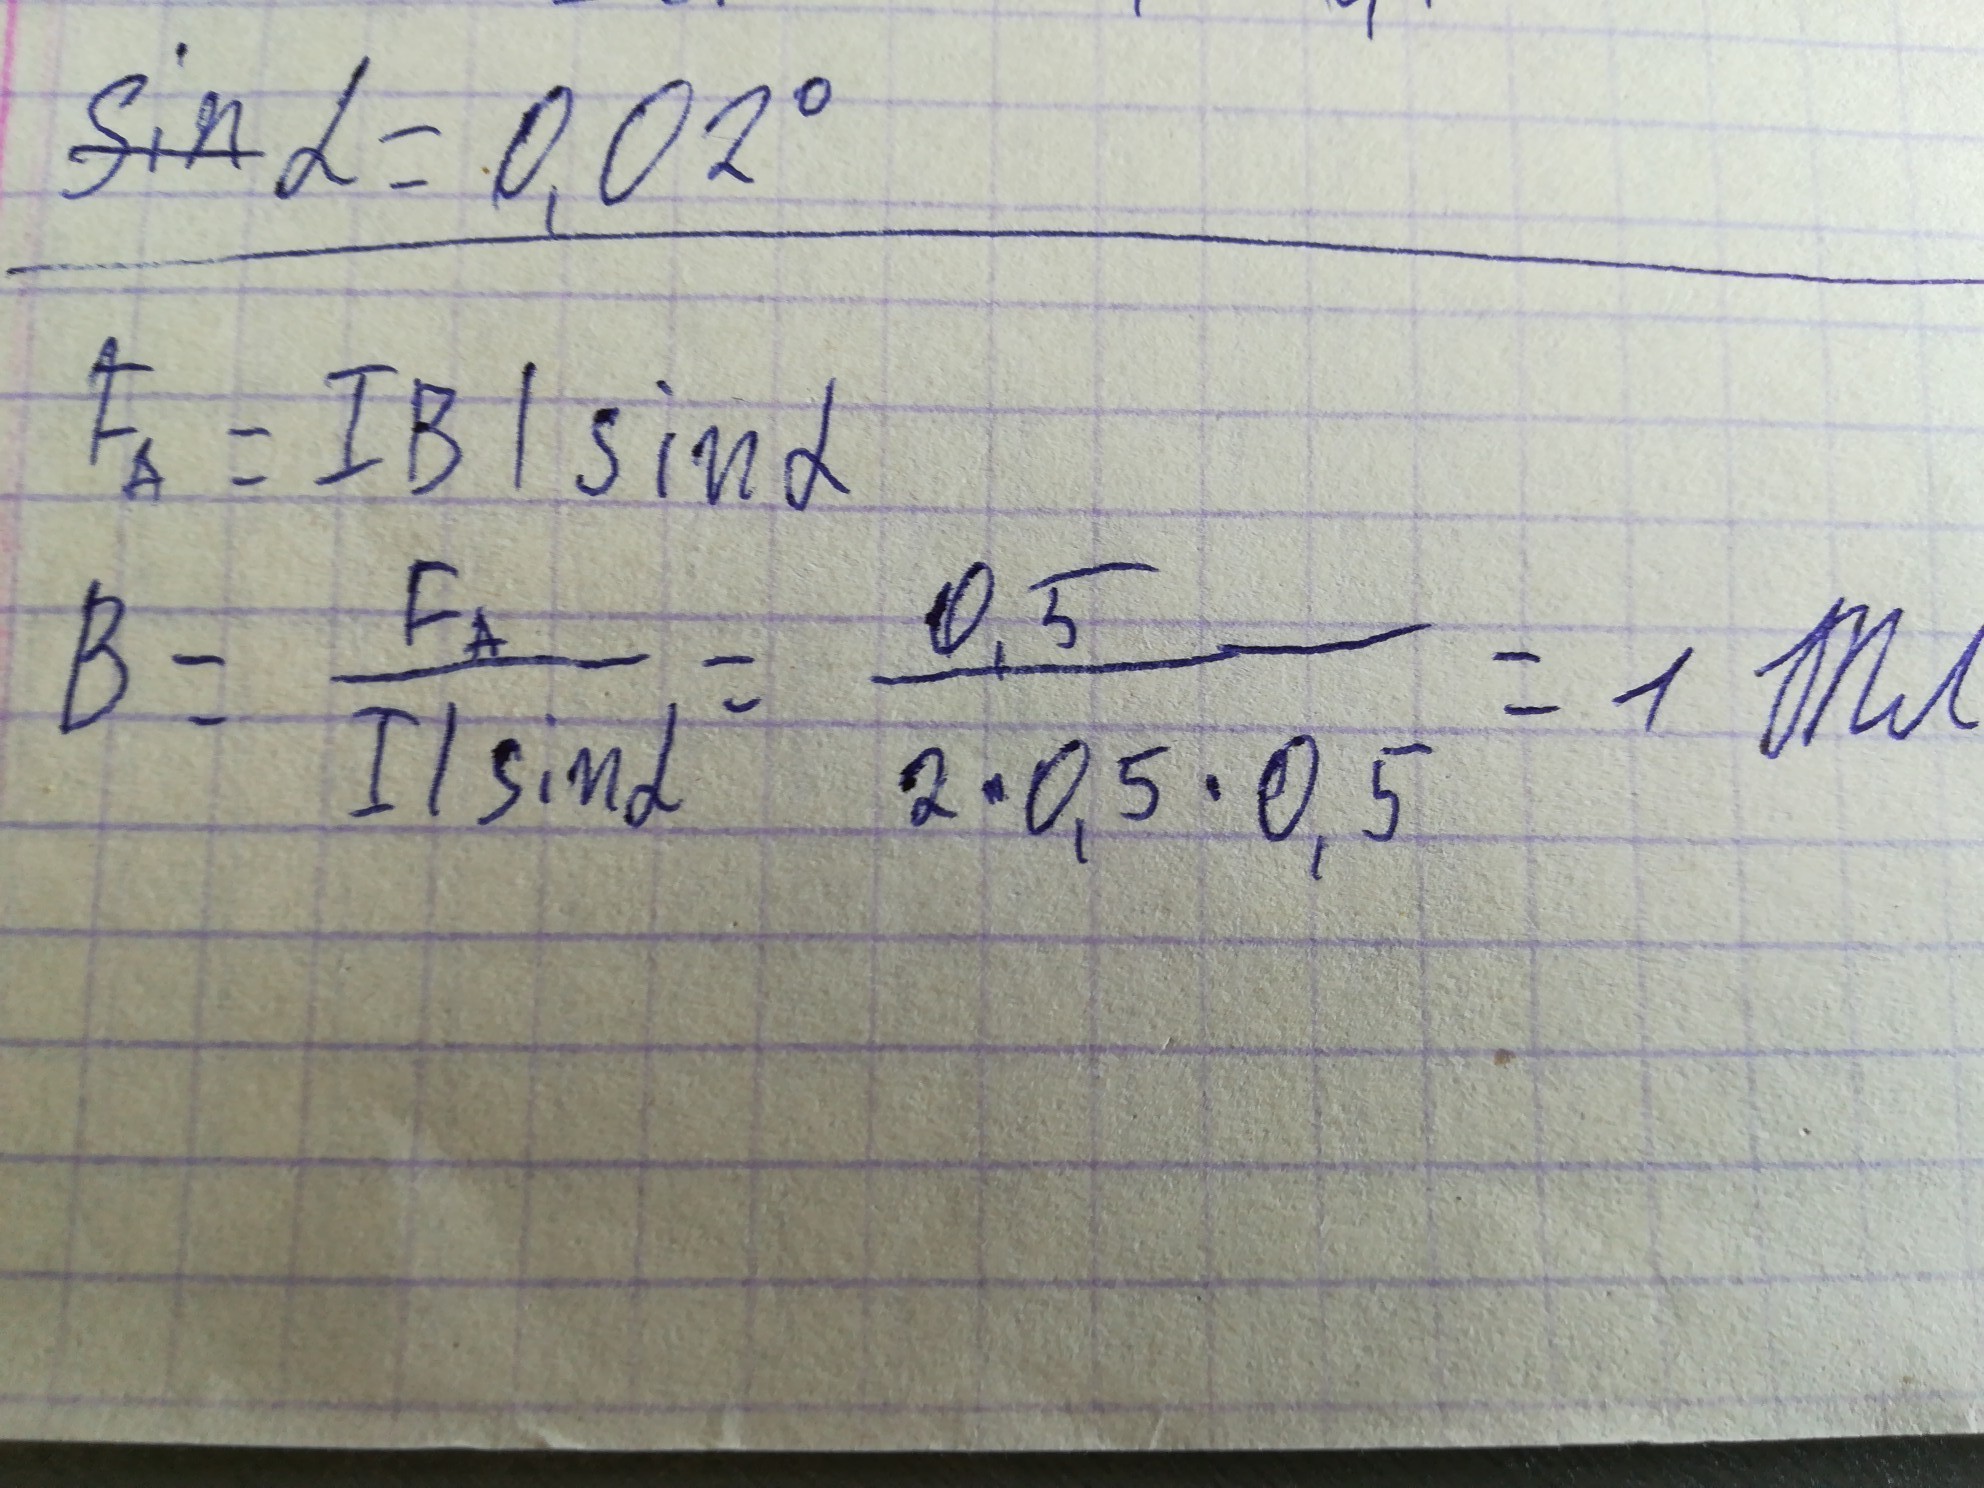 sin α = 0,02°
F_A = I B l sin α
B = F_A / I l sin α = 0,5 / 2 · 0,5 · 0,5 = 1 Тл